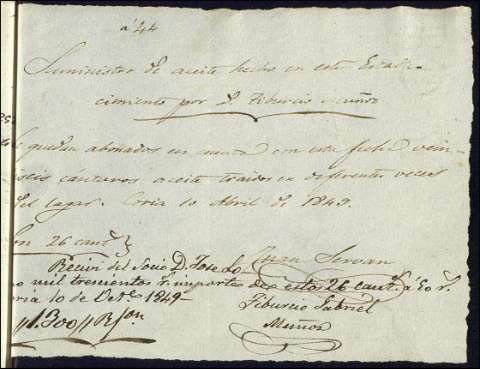 á 44
Suministro de aceite hecho en este Estable-
cimiento por D. Tiburcio Muñoz
quedan abonados en cuenta con esta fecha vein-
seis cántaros aceite traidos en diferentes veces
del lagar. Coria 10 Abril de 1849.
Son 26 cant.s
Juan Servan
Recivi del Socio D. Jose
mil trescientos r. importe de estos 26 cant.s á 50 r.
oria 10 de Oct.e 1849
Tiburcio Gabriel
Muñoz
1.300 R.s on